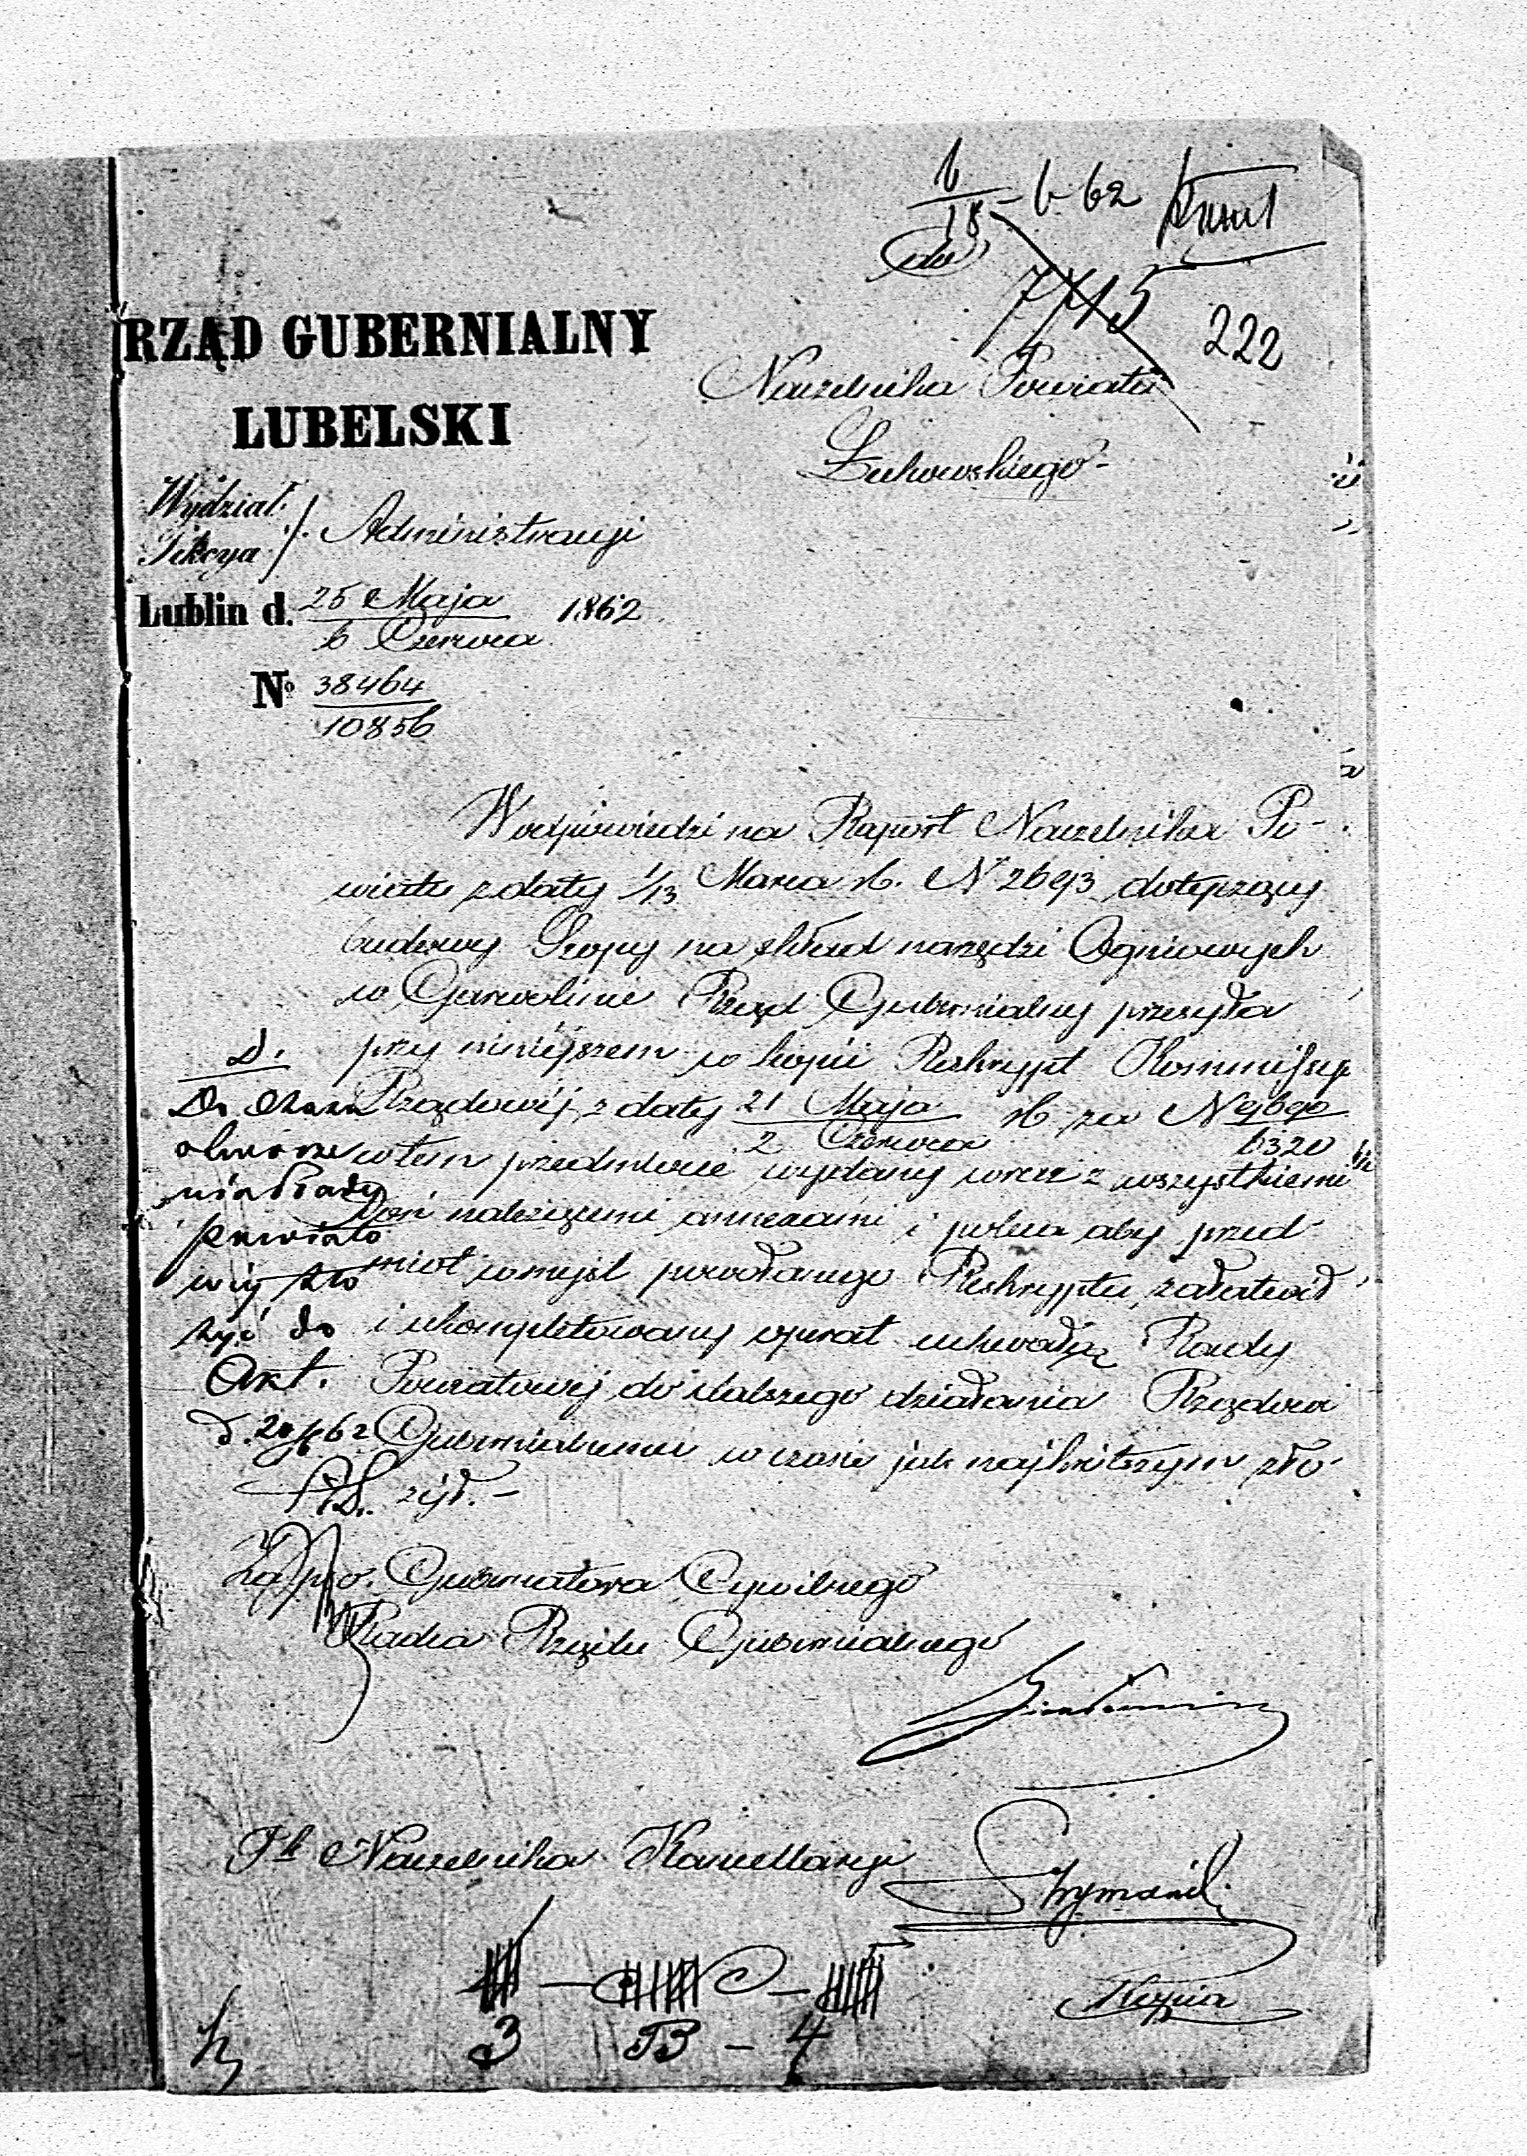 6/18 – 6 62
do
7715
222
RZĄD GUBERNIALNY
LUBELSKI
Naczelnika Powiatu
Łukowskiego
Wydział
Sekcya
Administracyi
Lublin d. 25 Maja / 6 Czerwca 1862
№ 38464 / 10856
W odpowiedzi na Raport Naczelnika Po-
wiatu z daty 1/13 Marca rb. N 2693 dotyczący
budowy Szopy na skład narzędzi Ogniowych
w Garwolinie Rząd Gubernialny przesyła
przy niniéjszem w kopii Reskrypt Kommissyi
Rządowéj z daty 21 Maja / 2 Czerwca rb za N 9690 / 6320
w tem przedmiocie wydany wraz z wszystkiemi
doń należącemi annexami i poleca aby przed-
miot w myśl powołanego Reskryptu załatwił
i ukompletowany operat uchwałą Rady
Powiatowéj do dalszego działania Rządowi
Gubernialnemu w czasie jak najkrótszym zło-
żył. –
D.
Do
Rady
Powiato
wéj zło
żyć do
Akt.
d. 20/6 62
Za p.o. Gubernatora Cywilnego
Radca Rządu Gubernialnego
Naczelnika Kancellaryi
Kopia
3 B – 4